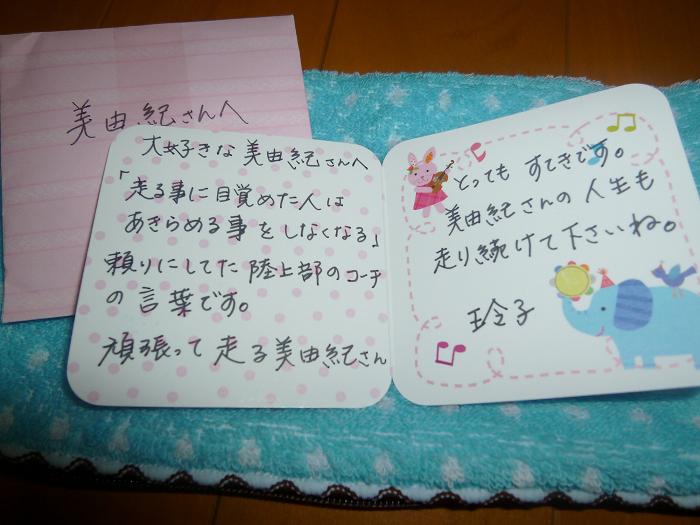 美由紀さんへ
大好きな美由紀さんへ
「走る事に目覚めた人は
あきらめる事をしなくなる」
頼りにしてた陸上部のコーチ
の言葉です。
頑張って走る美由紀さん
とってもすてきです。
美由紀さんの人生も
走り続けて下さいね。
玲子